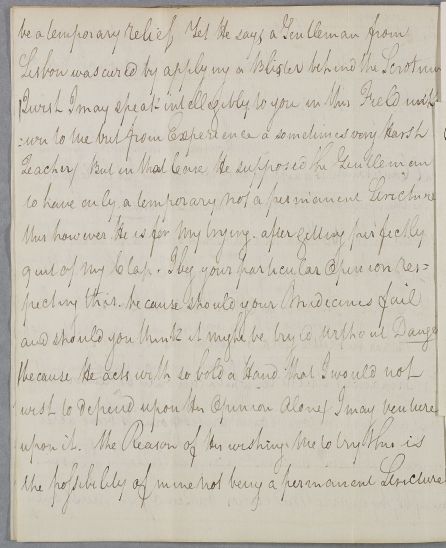 be a temporary Relief Yet He says a Gentleman from
Lisbon was cured by applying a Blister behind the Scrotum
I wish I may speak intellegibly to you in this Field unk=
=own to me but from Experience a sometimes very Harsh
Teacher, But in that Case He supposed the Gentleman
to have only a temporary not a permanent Stricture
this however He is for my trying. after getting perfectly
quit of my Clap. I beg your particular Opinion res=
pecting this. because should your Medicines fail
and should you think it might be try'd without Danger
(because He acts with so bold a Hand that I would not
wish to depend upon His Opinion Alone) I may venture
upon it. the Reason of His wishing me to try this is
the possibility of mine not being a permanent Stricture